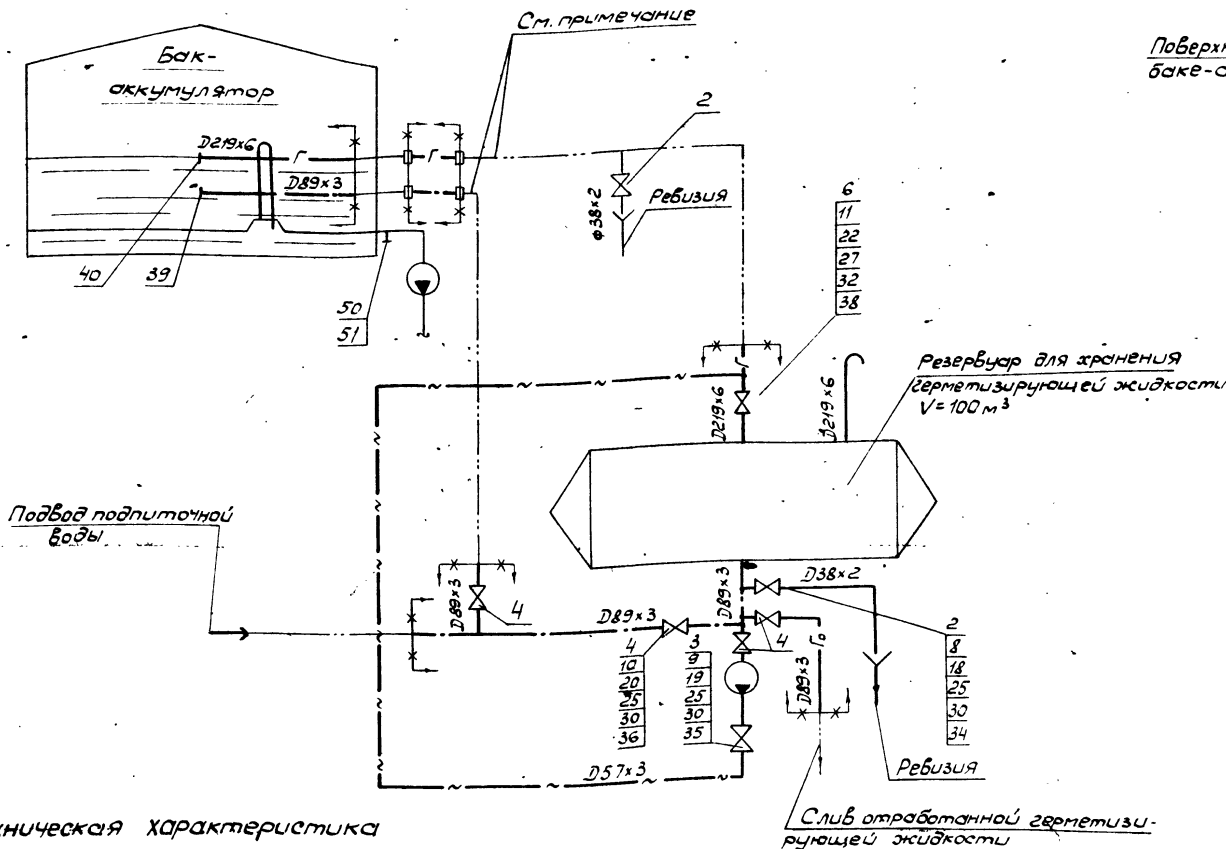 См. примечание
Поверхн
баке-а
Бак-
аккумулятор
D219×6
Г
Г
D89×3
2
Ревизия
ф38×2
40
39
50
51
6
11
22
27
32
38
Г
D219×6
D219×6
Резервуар для хранения
герметизирующей жидкости
V=100 м³
Подвод подпиточной
воды
D89×3
4
D89×3
D89×3
D38×2
4
10
20
25
30
36
3
9
19
25
30
35
4
Го
D89×3
2
8
18
25
30
34
D57×3
Ревизия
Слив отработанной гермети­зи-
рующей жидкости
ническая характеристика